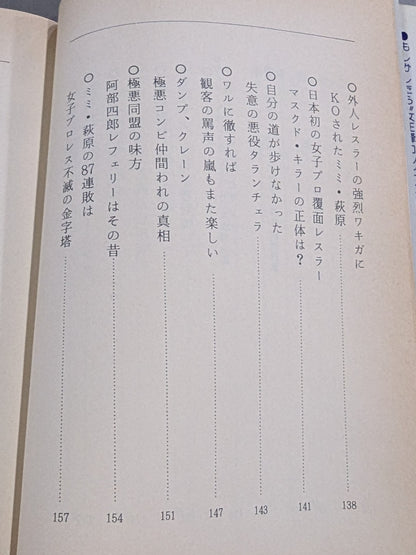 ○外人レスラーの強烈ワキガに
KOされたミミ・萩原
138
○日本初の女子プロ覆面レスラー
マスクド・キラーの正体は？
141
○自分の道が歩けなかった
失意の悪役タランチェラ
143
○ワルに徹すれば
観客の罵声の嵐もまた楽しい
147
○ダンプ、クレーン
極悪コンビ仲間われの真相
151
○極悪同盟の味方
阿部四郎レフェリーはその昔
154
○ミミ・萩原の87連敗は
女子プロレス不滅の金字塔
157